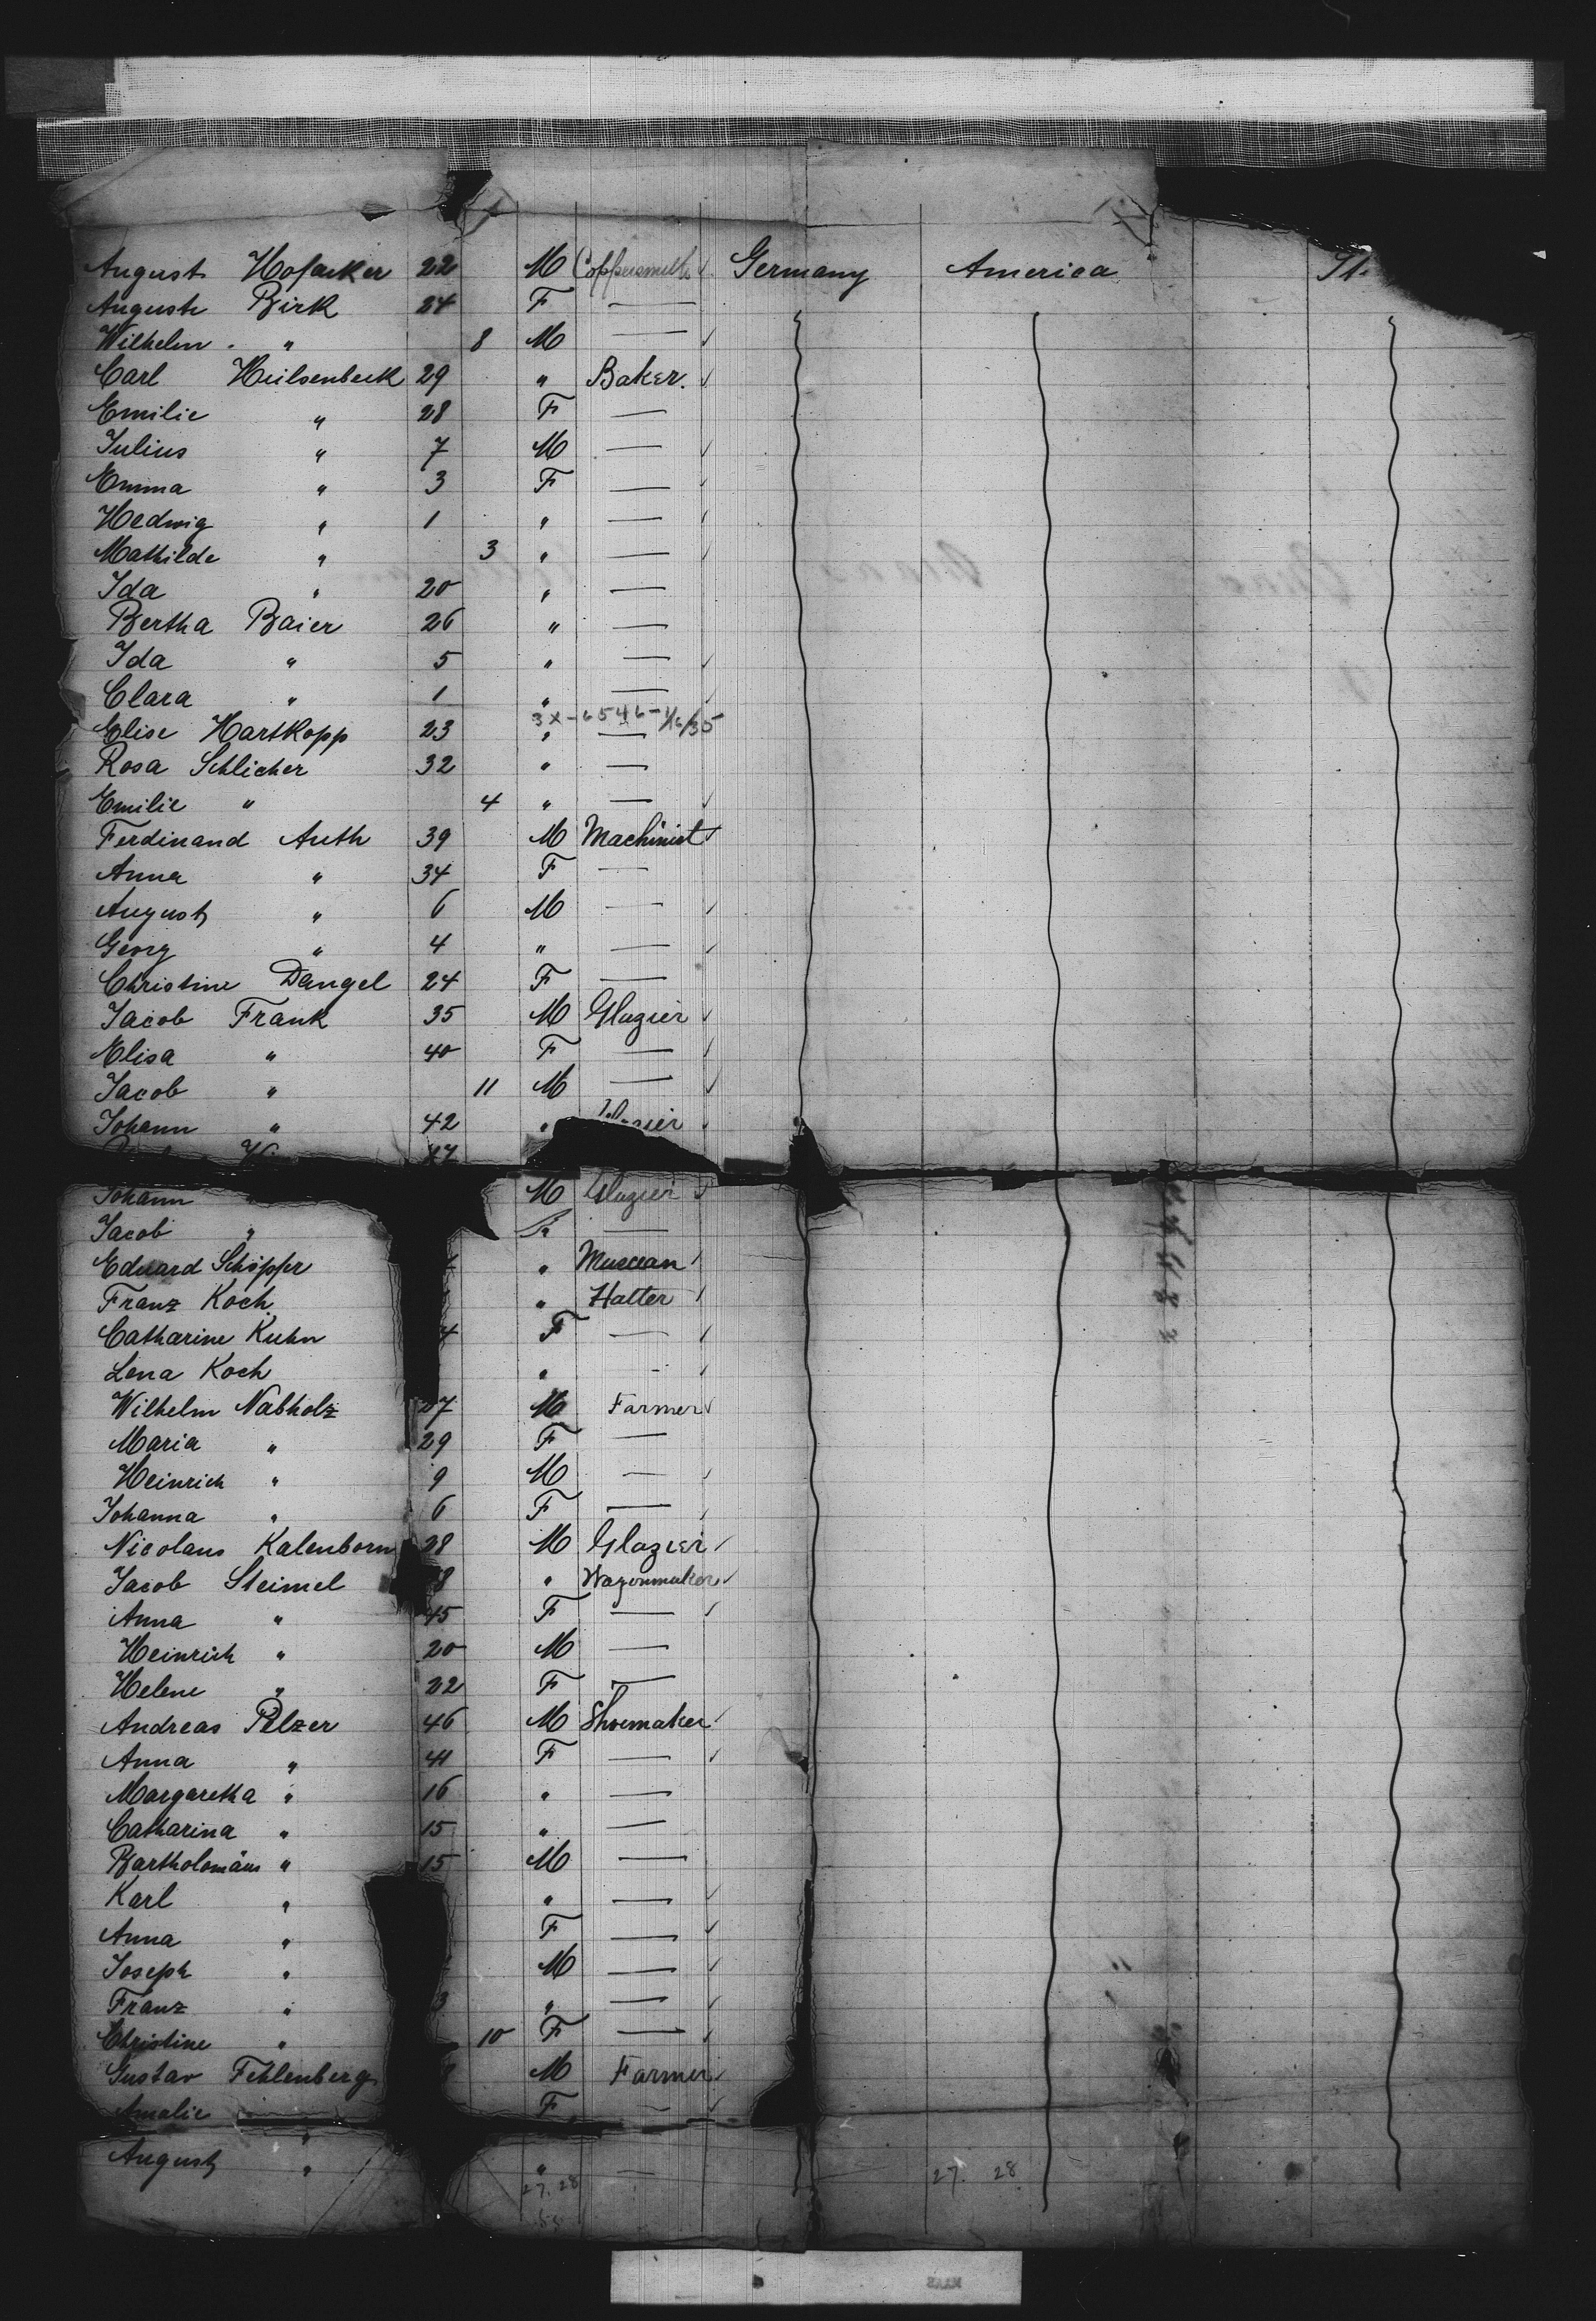 August Hofacker 22 M Coppersmith Germany America St.
Auguste Birk 24 F —
Wilhelm " 8 M —
Carl Heilsenbeck 29 " Baker.
Emilie " 28 F —
Julius " 7 M —
Emma " 3 F —
Hedwig " 1 " —
Mathilde " 3 " —
Ida " 20 " —
Bertha Baier 26 " —
Ida " 5 " —
Clara " 1 " —
3x-6546-1/16/35
Elise Hartkopp 23 " —
Rosa Schlicher 32 " —
Emilie " 4 " —
Ferdinand Auth 39 M Machinist
Anna " 34 F —
August " 6 M —
Georg " 4 " —
Christine Dangel 24 F —
Jacob Frank 35 M Glazier
Elisa " 40 F —
Jacob " 11 M —
Johann " 42 " Glazier
Johann " M Glazier
Jacob " —
Eduard Schöpper "
Franz Koch " Hatter
Catharine Kuhn 4 F —
Lena Koch " —
Wilhelm Nabholz 27 M Farmer
Maria " 29 F —
Heinrich " 9 M —
Johanna " 6 F —
Nicolaus Kalenborn 28 M Glazier
Jacob Steimel 8 " Wagonmaker
Anna " 45 F —
Heinrich " 20 M —
Helene " 22 F —
Andreas Pelzer 46 M Shoemaker
Anna " 41 F —
Margaretha " 16 " —
Catharina " 15 " —
Bartholomäus " 15 M —
Karl " " —
Anna " F —
Joseph " M —
Franz " 3 " —
Christine " 10 F —
Gustav Fehlenberg M Farmer
Amalie " F —
August " " —
27. 28 27. 28